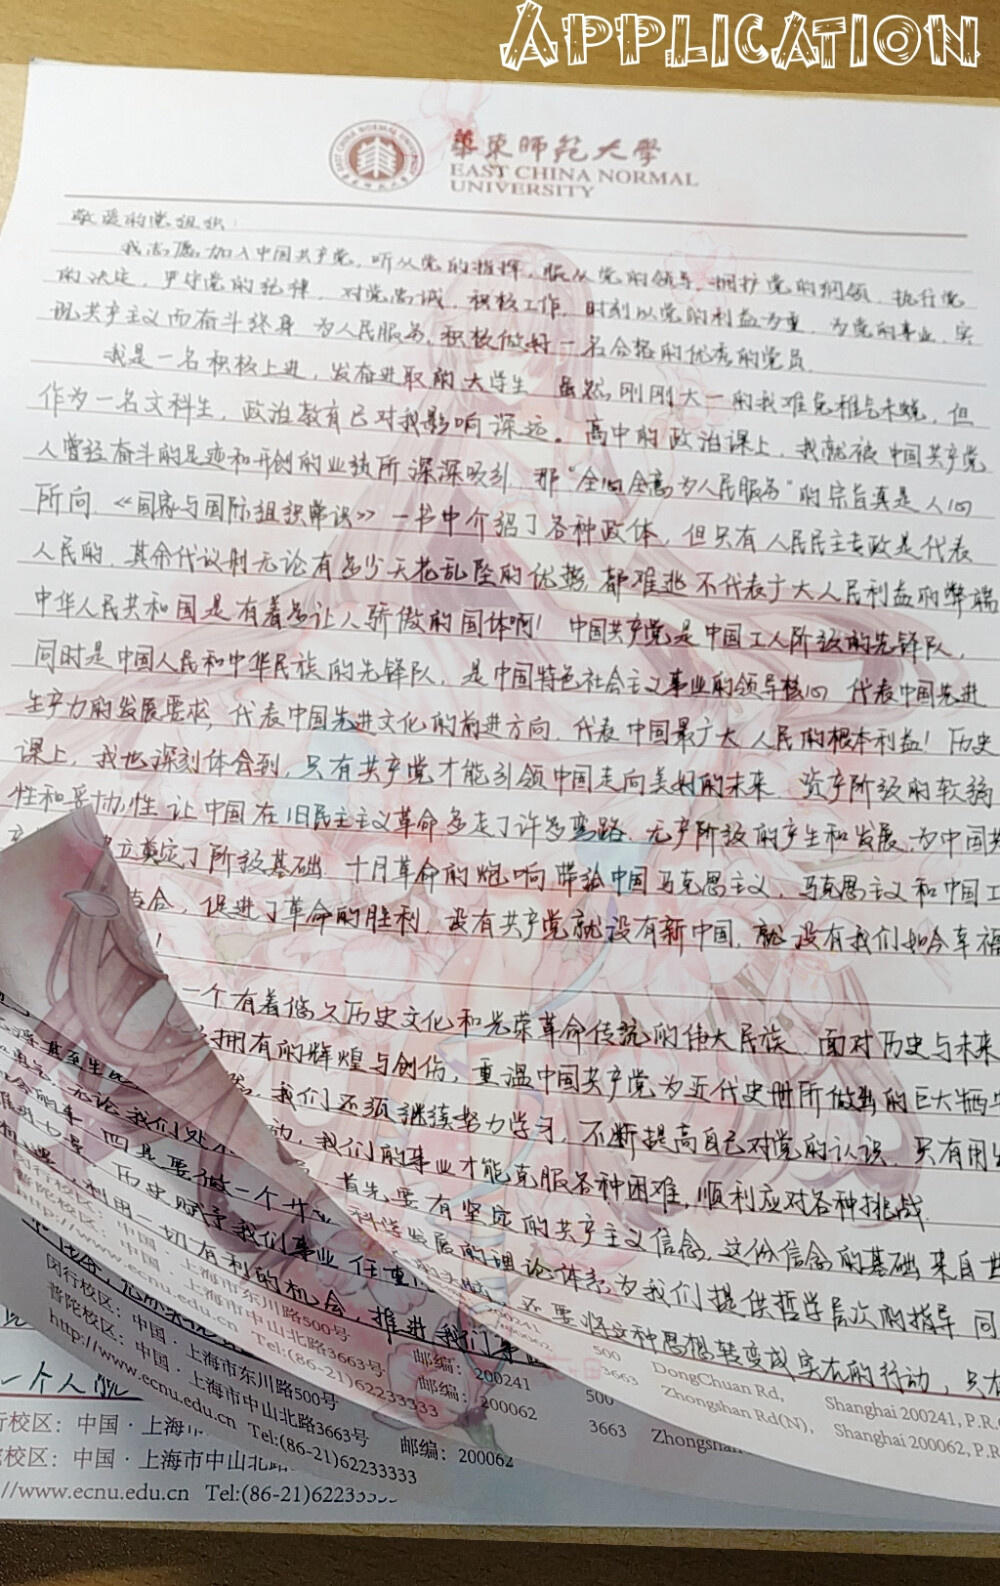 APPLICATION
華東師範大學
EAST CHINA NORMAL
UNIVERSITY
敬爱的党组织：
我志愿加入中国共产党，听从党的指挥，服从党的领导，拥护党的纲领，执行党
的决定，严守党的纪律，对党忠诚，积极工作，时刻以党的利益为重，为党的事业、实
现共产主义而奋斗终身，为人民服务，积极做好一名合格的优秀的党员。
我是一名积极上进，发奋进取的大学生，虽然刚刚大一的我难免稚气未蜕，但
作为一名文科生，政治教育已对我影响深远。高中的政治课上，我就被中国共产党
人曾经奋斗的足迹和开创的业绩所深深吸引，那“全心全意为人民服务”的宗旨真是人心
所向。《国家与国际组织常识》一书中介绍了各种政体，但只有人民民主专政是代表
人民的，其余代议制无论有多少天花乱坠的优势，都难逃不代表广大人民利益的弊端
中华人民共和国是有着多让人骄傲的国体啊！中国共产党是中国工人阶级的先锋队，
同时是中国人民和中华民族的先锋队，是中国特色社会主义事业的领导核心，代表中国先进
生产力的发展要求，代表中国先进文化的前进方向，代表中国最广大人民的根本利益！历史
课上，我也深刻体会到，只有共产党才能引领中国走向美好的未来，资产阶级的软弱
性和妥协性让中国在旧民主主义革命多走了许多弯路，无产阶级的产生和发展，为中国共
立奠定了阶级基础，十月革命的炮响带给中国马克思主义，马克思主义和中国工
结合，促进了革命的胜利，没有共产党就没有新中国，就没有我们如今幸福
！
一个有着悠久历史文化和光荣革命传统的伟大民族，面对历史与未来
拥有的辉煌与创伤，重温中国共产党为近代史册所做出的巨大牺牲
我们还须继续努力学习，不断提高自己对党的认识，只有用
我们的事业才能克服各种困难，顺利应对各种挑战。
首先要有坚定的共产主义信念，这份信念的基础来自
科学发展的理论体系，为我们提供哲学层次的指导，同
还要将这种思想转变成实在的行动，只有
无论我们处
四是要做一个
历史赋予我们事业任重
利用一切有利的机会，推进我们事
闵行校区：中国·上海市东川路500号
普陀校区：中国·上海市中山北路3663号
http://www.ecnu.edu.cn
闵行校区：中国·上海市东川路500号 邮编：200241 500 DongChuan Rd, Shanghai 200241, P.R.
普陀校区：中国·上海市中山北路3663号 邮编：200062 3663 Zhongshan Rd(N), Shanghai 200062, P.R.
http://www.ecnu.edu.cn Tel:(86-21)62233333
一个人
行校区：中国·上海 500
校区：中国·上海市中山北路 邮编：200062 3663 Zhongshan
//www.ecnu.edu.cn Tel:(86-21)62233333